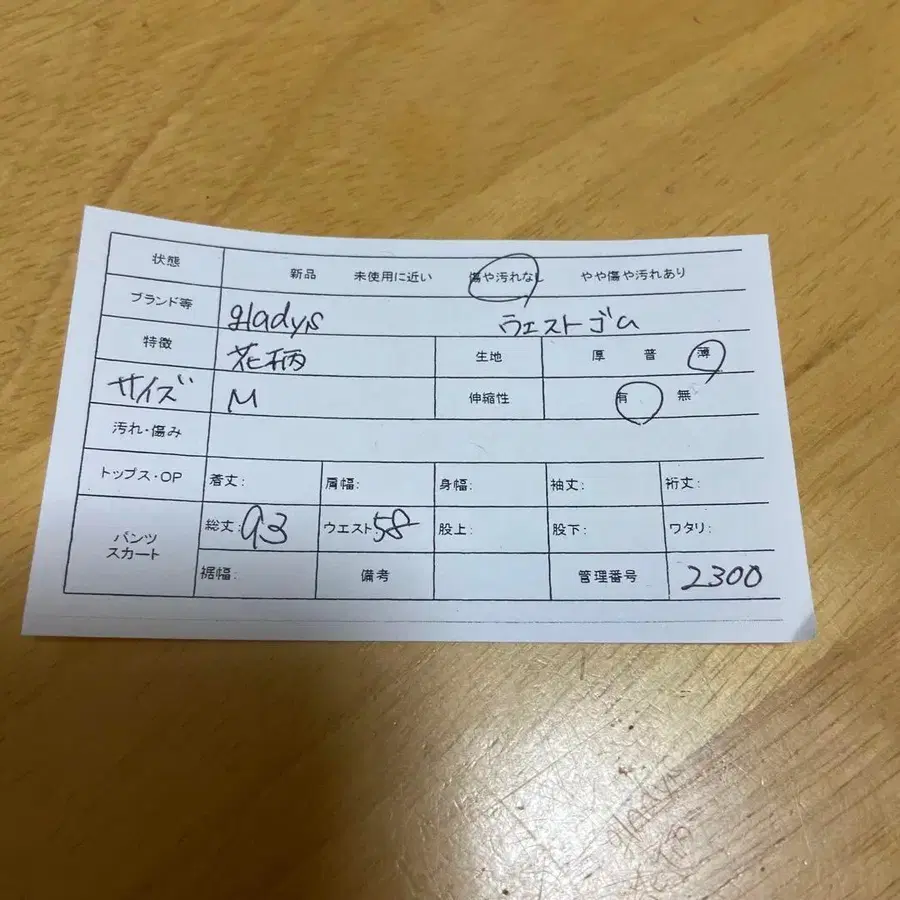 状態 新品 未使用に近い 傷や汚れなし やや傷や汚れあり
ブランド等 gladys ウエストゴム
特徴 花柄 生地 厚 普 薄
サイズ M 伸縮性 有 無
汚れ・傷み
トップス・OP 着丈: 肩幅: 身幅: 袖丈: 裄丈:
パンツ スカート 総丈: 93 ウエスト: 58 股上: 股下: ワタリ:
裾幅: 備考 管理番号 2300